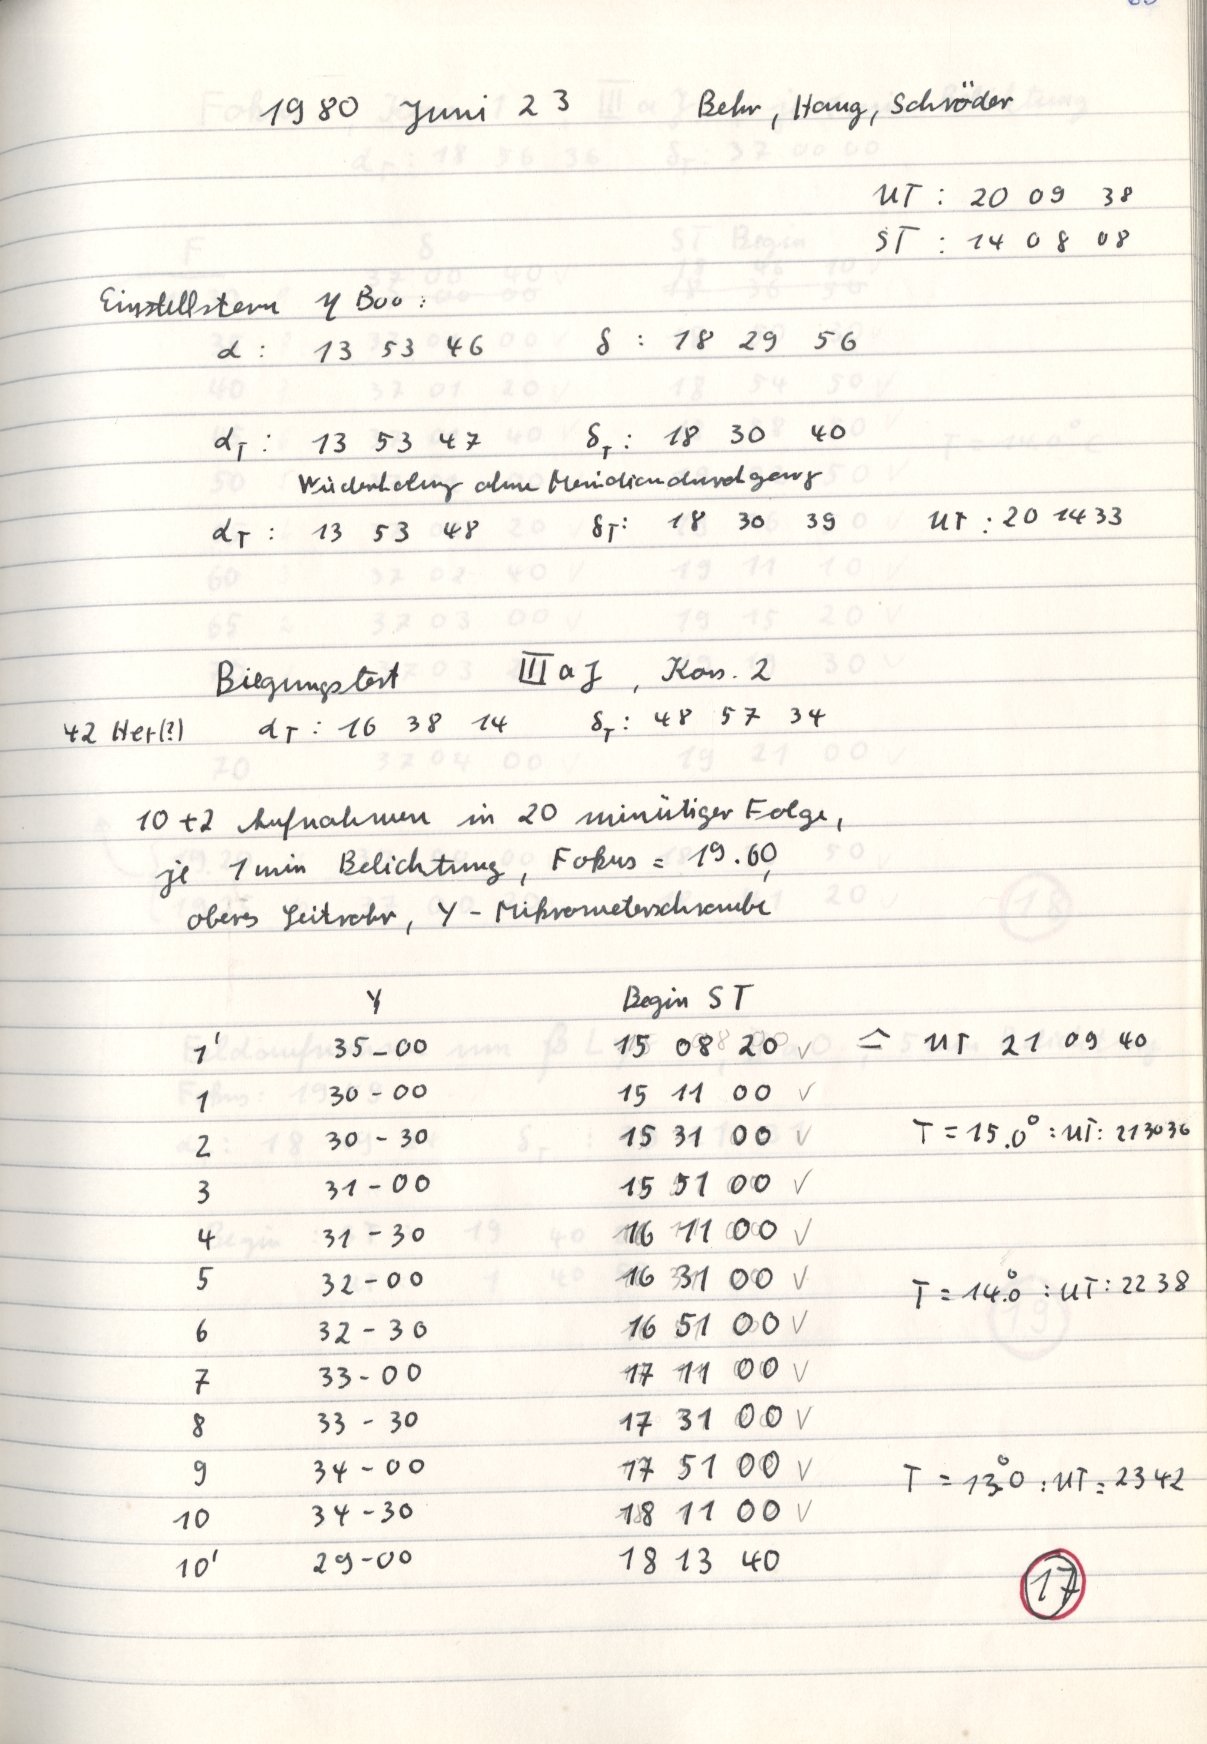 1980 Juni 23 Behr, Haug, Schröder
UT : 20 09 38
ST : 14 08 08
Einstellstern η Boo :
α : 13 53 46 δ : 18 29 56
α_T : 13 53 47 δ_T : 18 30 40
Wiederholung ohne Meridiandurchgang
α_T : 13 53 48 δ_T : 18 30 39 UT : 20 14 33
Biegungstest III a J , Kass. 2
42 Her(?) α_T : 16 38 14 δ_T : 48 57 34
10 + 2 Aufnahmen in 20 minütiger Folge,
je 1 min Belichtung, Fokus = 19.60,
oberes Leitrohr, Y - Mikrometerschraube
Y Begin ST
1' 35-00 15 08 20 ✓ ≙ UT 21 09 40
1 30-00 15 11 00 ✓
2 30-30 15 31 00 ✓ T = 15.0° : UT : 21 30 36
3 31-00 15 51 00 ✓
4 31-30 16 11 00 ✓
5 32-00 16 31 00 ✓ T = 14.0° : UT : 22 38
6 32-30 16 51 00 ✓
7 33-00 17 11 00 ✓
8 33-30 17 31 00 ✓
9 34-00 17 51 00 ✓ T = 13.0° : UT : 23 42
10 34-30 18 11 00 ✓
10' 29-00 18 13 40
17